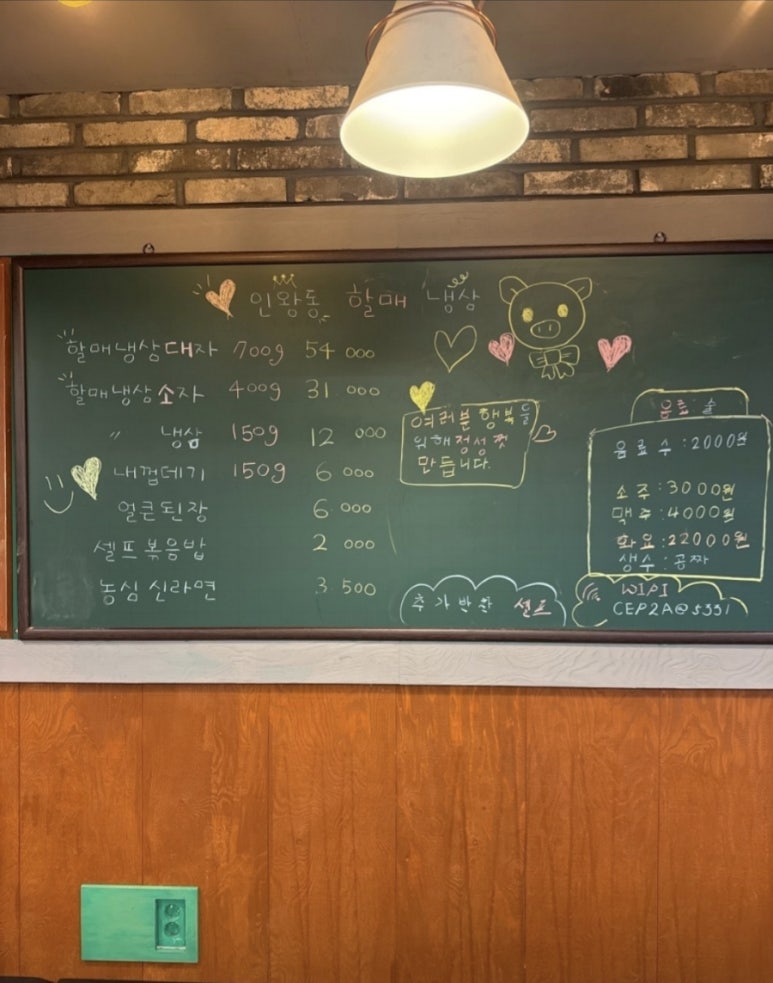 인왕동 할매 냉삼
할매냉삼대자 700g 54 000
할매냉삼소자 400g 31 000
〃 냉삼 150g 12 000
내껍데기 150g 6 000
얼큰된장 6 000
셀프볶음밥 2 000
농심 신라면 3 500
여러분 행복을
위해 정성껏
만듭니다.
추가반찬 셀프
음료·술
음료수:2000원
소주:3000원
맥주:4000원
화요:22000원
생수:공짜
WIPI
CEP2A@5331